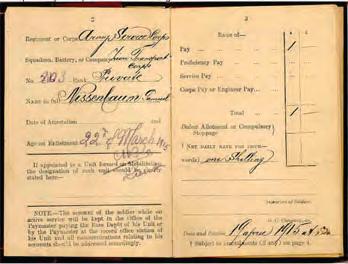 2
Regiment or Corps Army Service Corps
Squadron, Battery, or Company Transport Corps
No. Rank Private
Name in full Nissenbaum Samuel
Date of Attestation and
Age on Enlistment 22nd March 1915
If appointed to a Unit formed on Mobilization,
the designation of such unit should be
stated here—
NOTE.—The account of the soldier while on
active service will be kept in the Office of the
Paymaster paying the Base Depôt of his Unit or
by the Paymaster at the record office station of
his Unit and all communications relating to his
accounts should be addressed accordingly.
3
Rate of—
Pay 1
Proficiency Pay
Service Pay
Corps Pay or Engineer Pay
Total 1
Deduct Allotment or Compulsory
Stoppage
NET DAILY RATE FOR ISSUE
words) one Shilling
Signature of Soldier.
Date and Station 1915
(Subject to amendments (if any) on page 4.